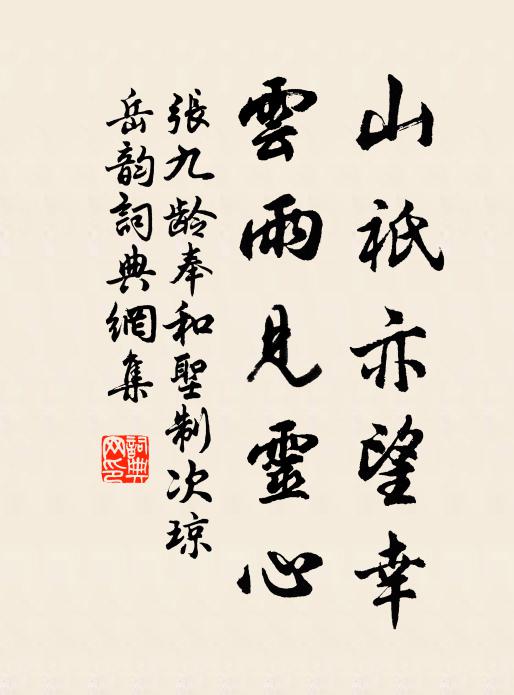 山祇亦望幸
雲雨見靈心
張九龄奉和聖制次琼
岳韵詞典網集
詞典网印